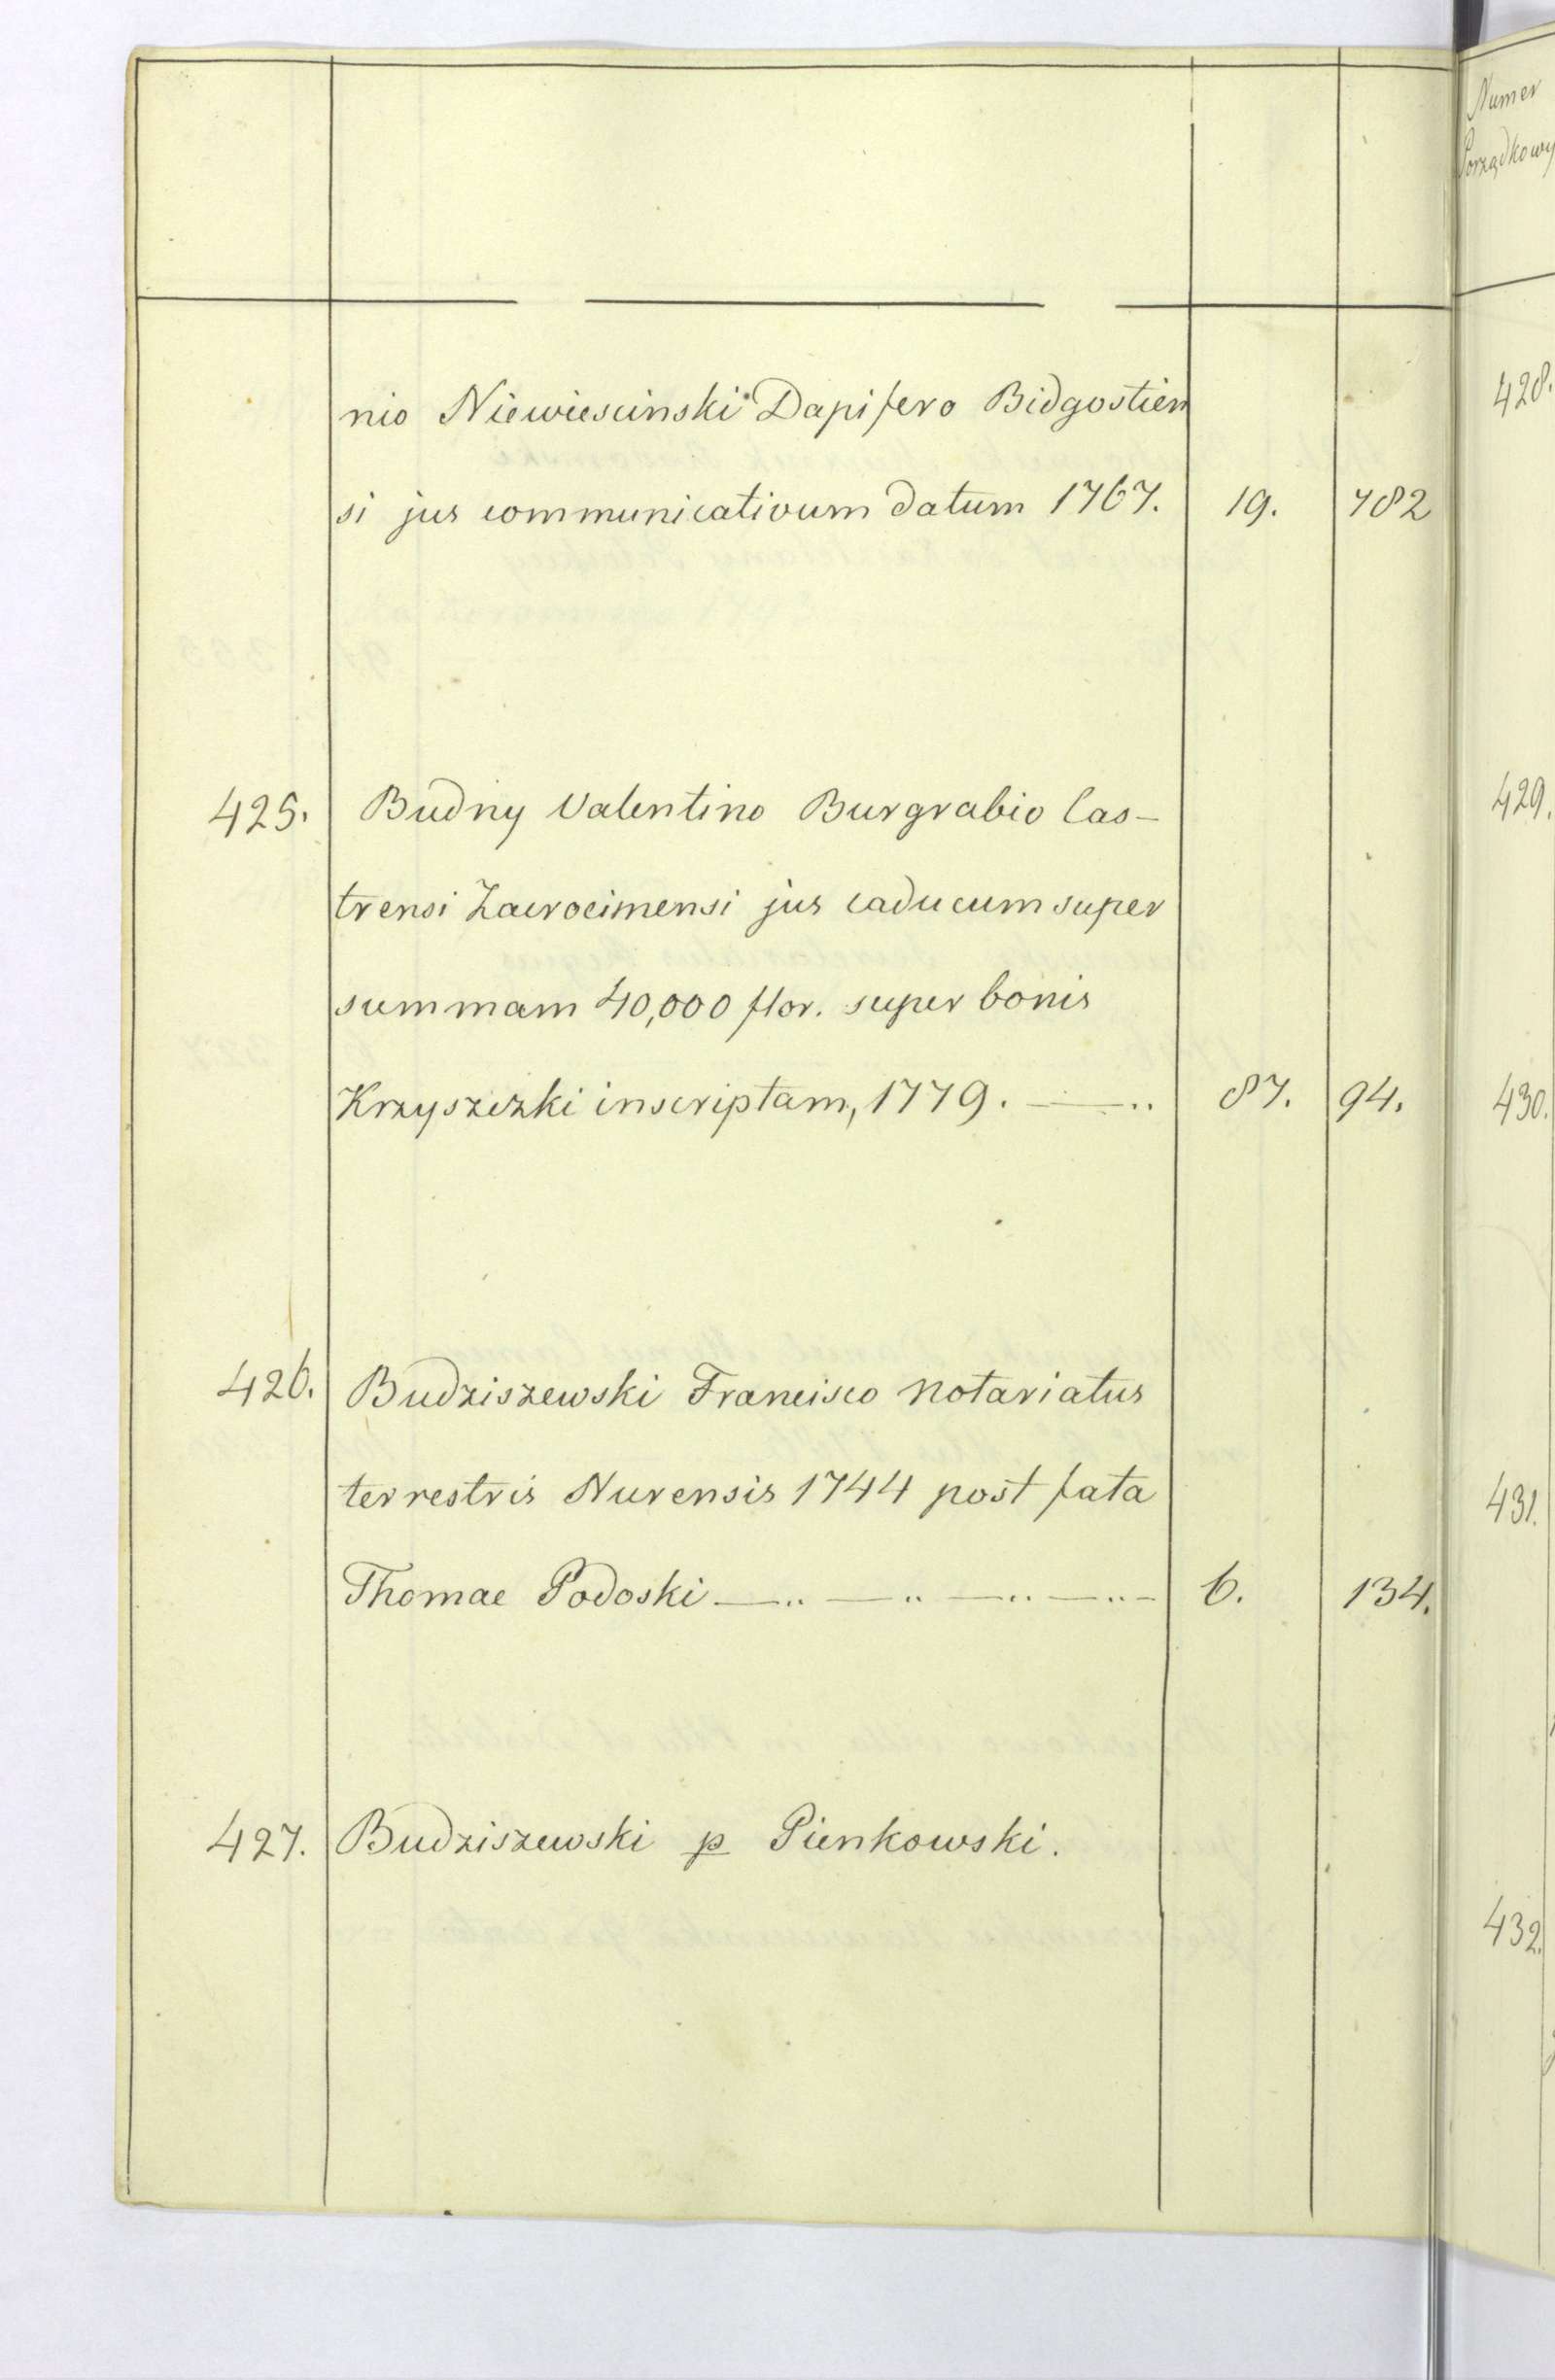 nio Niewiescinski Dapifero Bidgostien
si jus communicativum datum 1767. 19. 782
425. Budny Valentino Burgrabio Cas-
trensi Zacrocimensi jus caducum super
summam 40,000 flor. super bonis
Krzyszczki inscriptam, 1779. 87. 94.
426. Budziszewski Francisco notariatus
terrestris Nurensis 1744 post fata
Thomae Podoski 6. 134.
427. Budziszewski p Pienkowski.
Numer
Porządkowy
428.
429.
430.
431.
432.